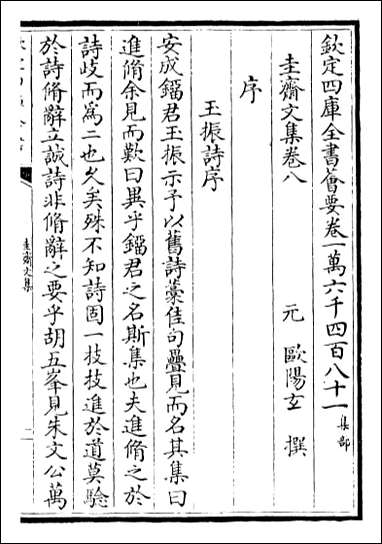 欽定四庫全書薈要卷一萬六千四百八十一集部
圭齋文集卷八
元　歐陽玄　撰
序
玉振詩序
安成鎦君玉振示予以舊詩藁佳句疊見而名其集曰
進脩余見而歎曰異乎鎦君之名斯集也夫進脩之於
詩歧而為二也久矣殊不知詩固一技技進於道莫驗
於詩脩辭立誠詩非脩辭之要乎胡五峯見朱文公萬
圭齋文集